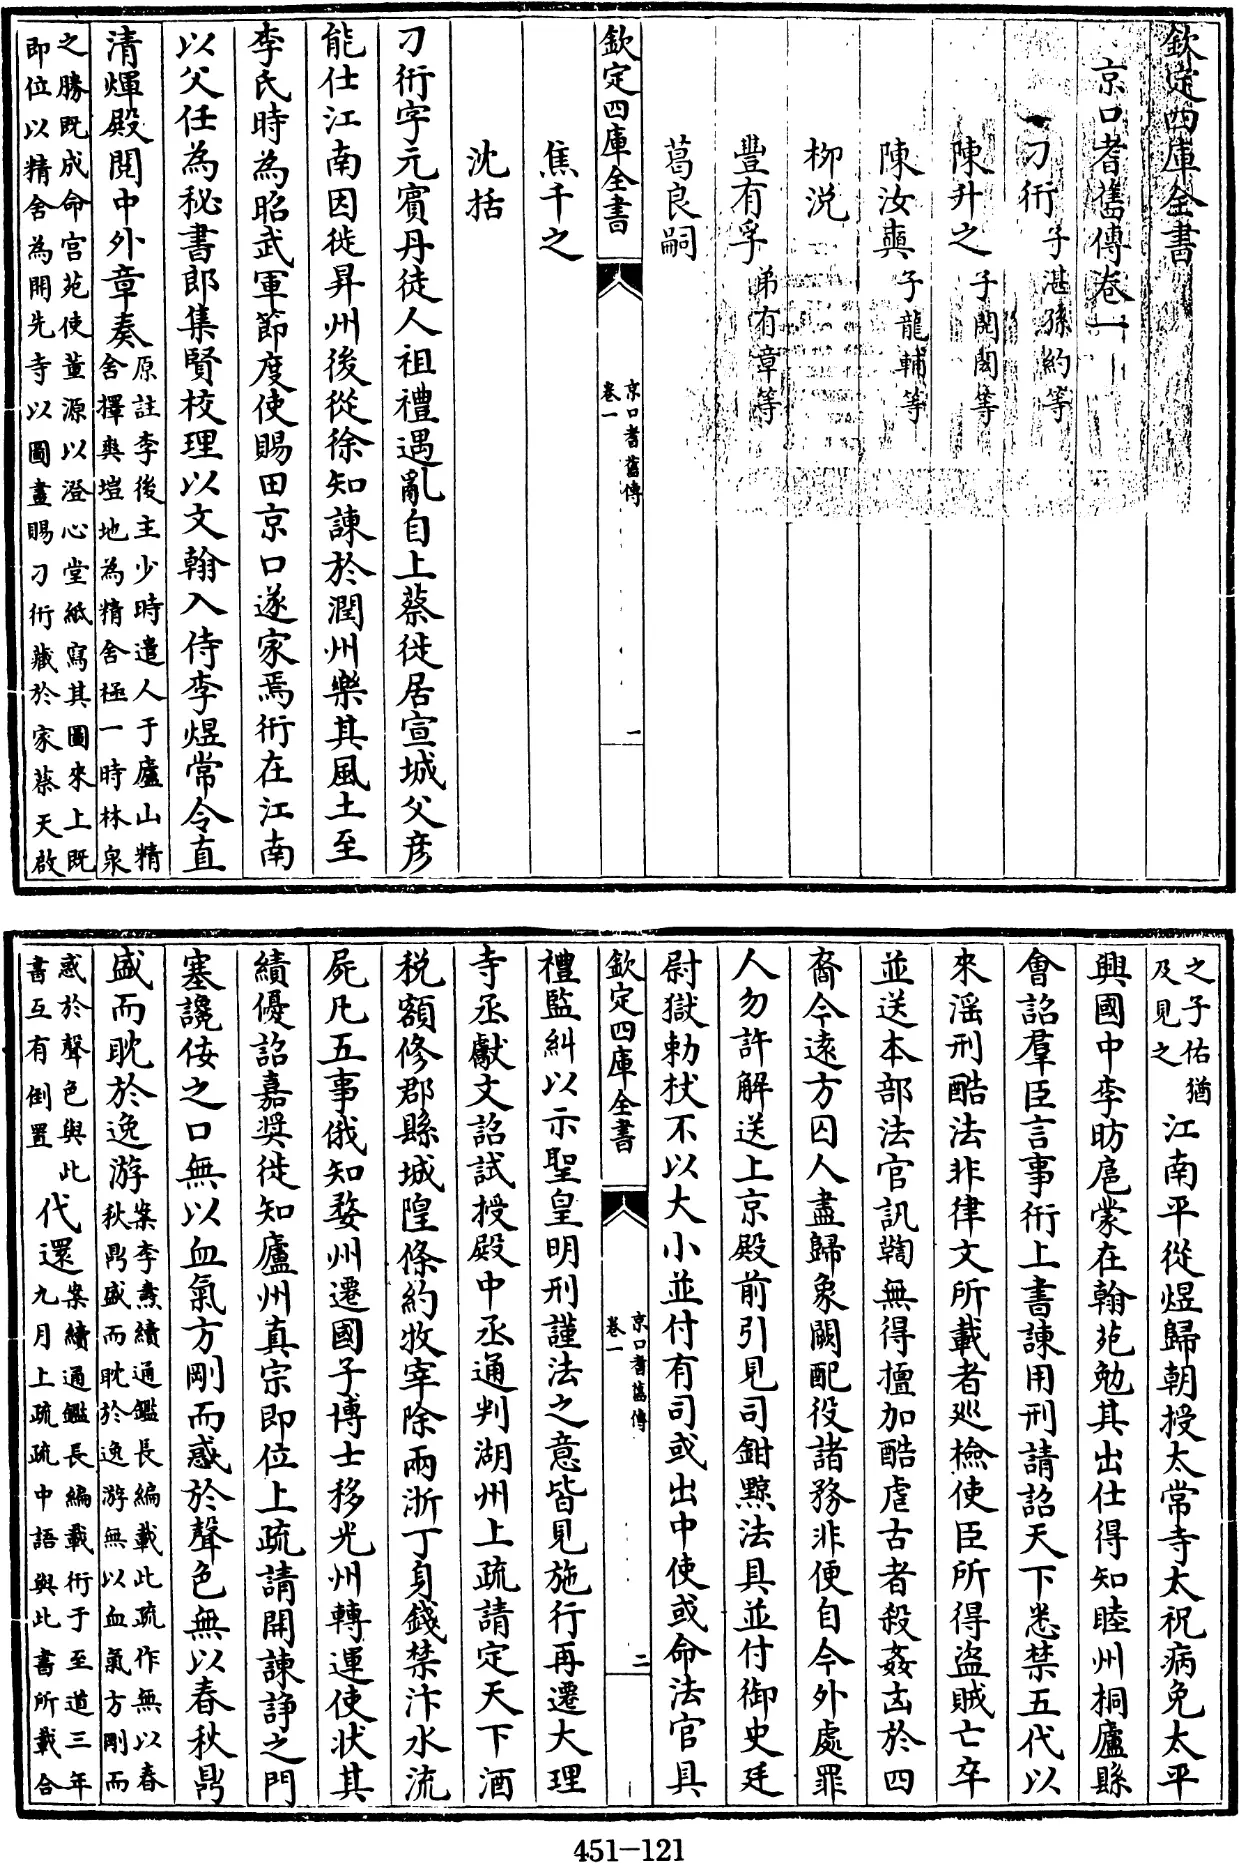 欽定四庫全書
京口耆舊傳卷一
刁衎 子湛孫約等
陳升之 子閱閎等
陳汝奭 子龍輔等
柳涚
豐有孚 弟有章等
葛良嗣
欽定四庫全書 京口耆舊傳 卷一 一
焦千之
沈括
刁衎字元賓丹徒人祖禮遇亂自上蔡徙居宣城父彦
能仕江南因徙昇州後從徐知諫於潤州樂其風土至
李氏時為昭武軍節度使賜田京口遂家焉衎在江南
以父任為秘書郎集賢校理以文翰入侍李煜常令直
清煇殿閲中外章奏
原註李後主少時遣人于廬山精
舍擇爽塏地為精舍極一時林泉
之勝既成命宫苑使董源以澄心堂紙寫其圖來上既
即位以精舍為開先寺以圖畫賜刁衎藏於家蔡天啟
之子佑猶
及見之
江南平從煜歸朝授太常寺太祝病免太平
興國中李昉扈蒙在翰苑勉其出仕得知睦州桐廬縣
會詔羣臣言事衎上書諫用刑請詔天下悉禁五代以
來淫刑酷法非律文所載者廵檢使臣所得盜賊亡卒
並送本部法官訊鞫無得擅加酷虐古者殺姦凶於四
裔今遠方囚人盡歸象闕配役諸務非便自今外處罪
人勿許解送上京殿前引見司鉗黥法具並付御史廷
尉獄勅杖不以大小並付有司或出中使或命法官具
欽定四庫全書 京口耆舊傳 卷一 二
禮監糾以示聖皇明刑謹法之意皆見施行再遷大理
寺丞獻文詔試授殿中丞通判湖州上疏請定天下酒
税額修郡縣城隍條約牧宰除兩浙丁身錢禁汴水流
屍凡五事俄知婺州遷國子博士移光州轉運使狀其
績優詔嘉奨徙知廬州真宗即位上疏請開諫諍之門
塞讒佞之口無以血氣方剛而惑於聲色無以春秋鼎
盛而耽於逸游
案李燾續通鑑長編載此疏作無以春
秋鼎盛而耽於逸游無以血氣方剛而
惑於聲色與此
書互有倒置
代還
案續通鑑長編載衎于至道三年
九月上疏疏中語與此書所載合
451—121